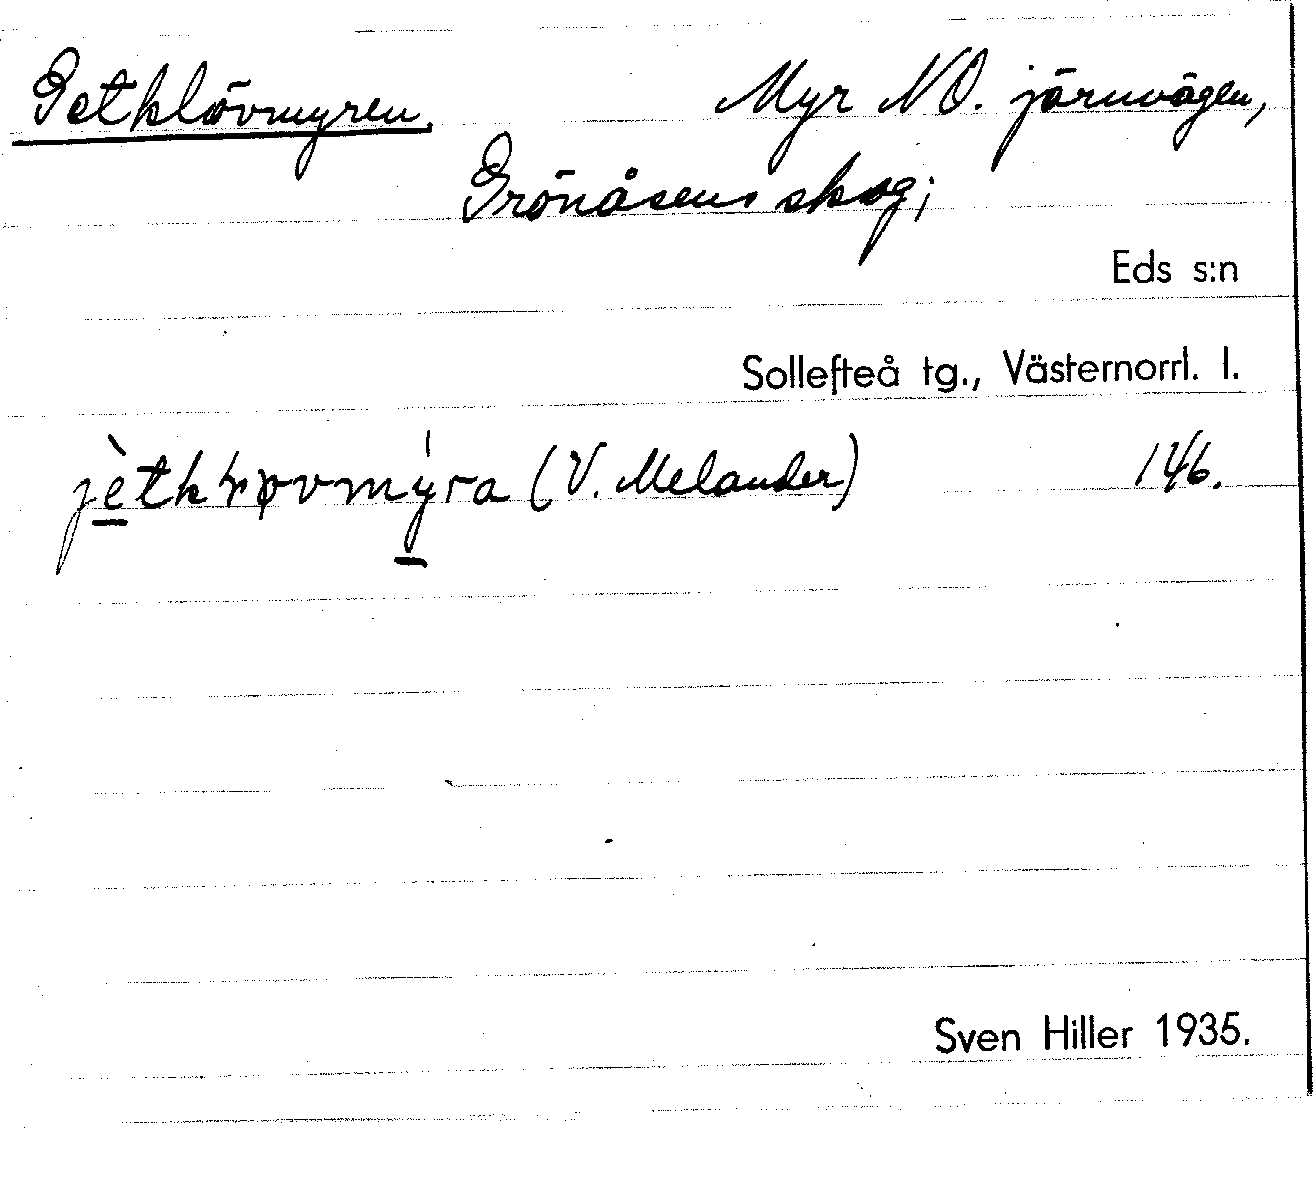 Getklövmyren. Myr NO. järnvägen,
Grönåsens skog;
Eds s:n
Sollefteå tg., Västernorrl. l.
(V. Melander) 146.
Sven Hiller 1935.